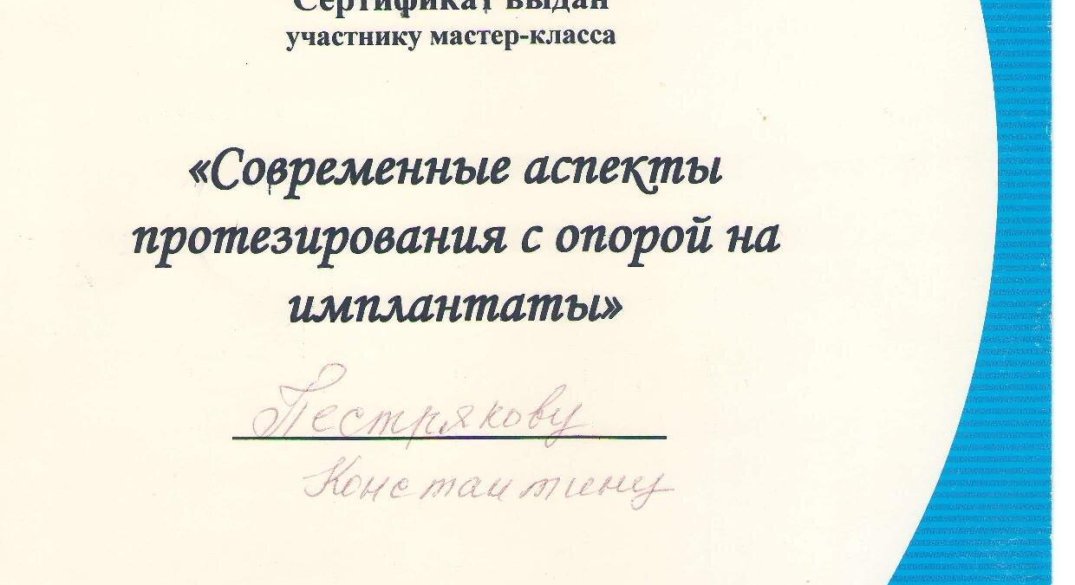 Сертификат выдан
участнику мастер-класса
«Современные аспекты
протезирования с опорой на
имплантаты»
Пестрякову
Константину